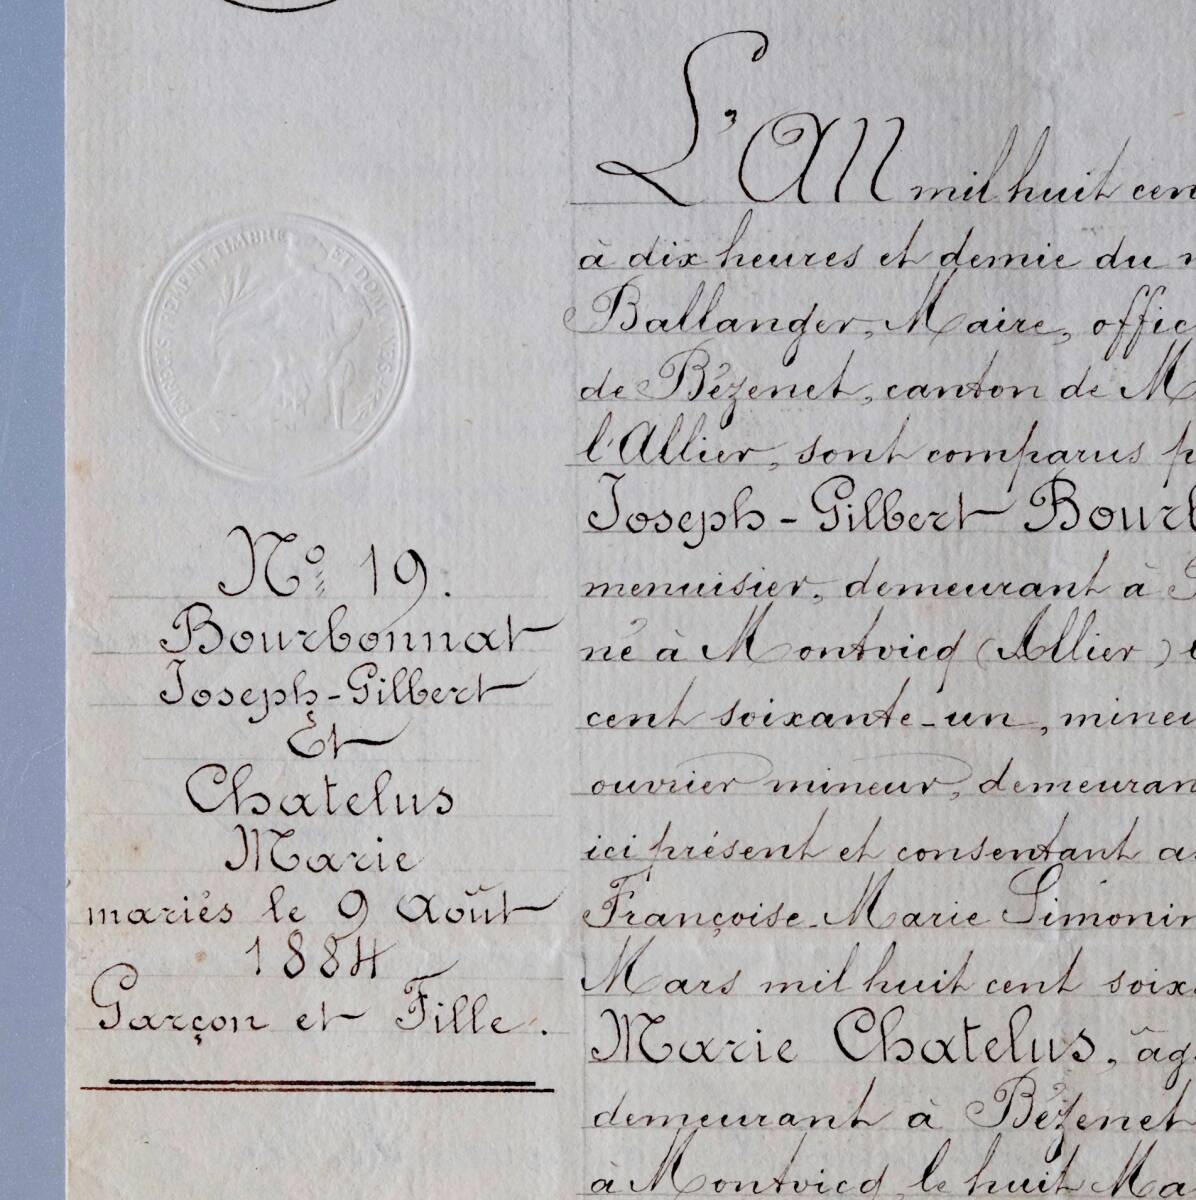 ENREGISTREMENT TIMBRE ET DOMAINES
N° 19.
Bourbonnat
Joseph-Gilbert
Et
Chatelus
Marie
mariés le 9 Août
1884
Garçon et Fille.
L'An mil huit cen
à dix heures et demie du
Ballanger, Maire, offic
de Bézenet, canton de M
l'Allier, sont comparus p
Joseph-Gilbert Bourb
menuisier, demeurant à
né à Montvicq (Allier) l
cent soixante-un, mineu
ouvrier mineur, demeuran
ici présent et consentant a
Françoise-Marie Simonin
Mars mil huit cent soix
Marie Chatelus, âg
demeurant à Bézenet
à Montvicq, le huit Ma